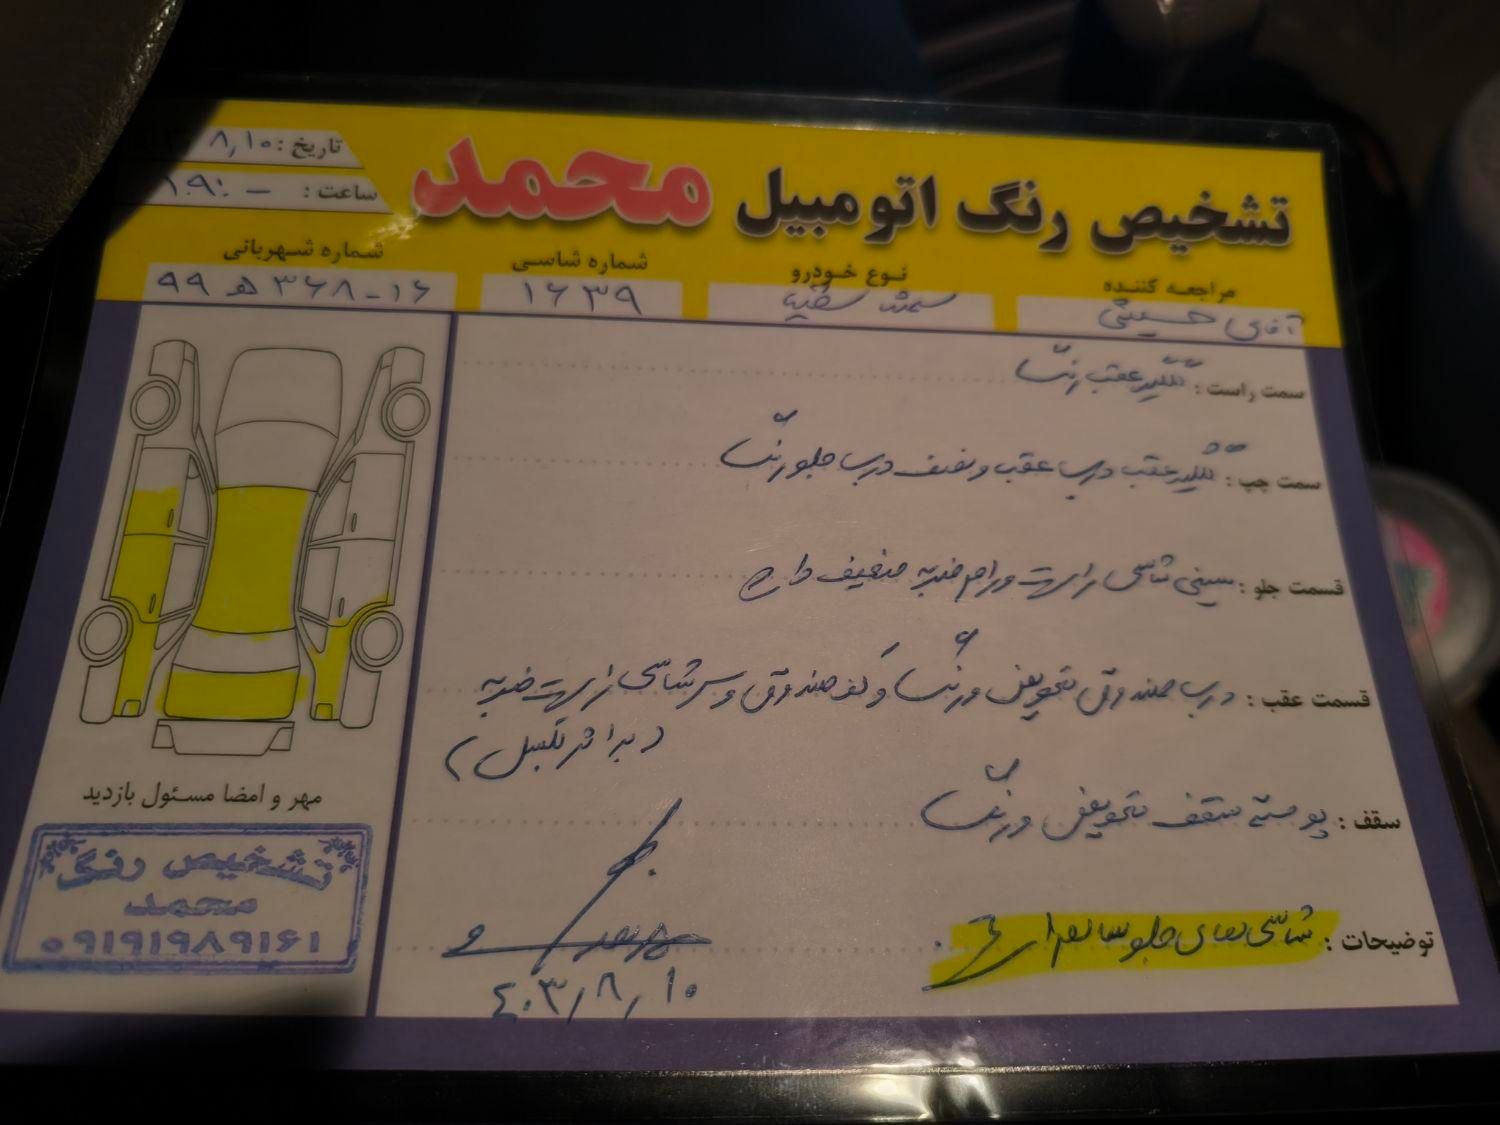 تشخیص رنگ اتومبیل محمد
تاریخ : ۸٫۱۰
ساعت : ۱۹:۰ –
مراجعه کننده
آقای حسینی
نوع خودرو
سمند سفید
شماره شاسی
۱۶۳۹
شماره شهربانی
۹۹ ه ۳۶۸-۱۶
سمت راست : گلگیر عقب رنگ
سمت چپ : گلگیر عقب درب عقب و نصف درب جلو رنگ
قسمت جلو : سینی شاسی راست و رام ضربه ضعیف دارد
قسمت عقب : درب صندوق تعویض و رنگ و کف صندوق و سر شاسی راست ضربه
( بر اثر کپسول )
سقف : پوسته سقف تعویض و رنگ
توضیحات : شاسی های جلو سالم است
۴۰۳٫۸٫۱۰
مهر و امضا مسئول بازدید
تشخیص رنگ
محمد
۰۹۱۹۱۹۸۹۱۶۱